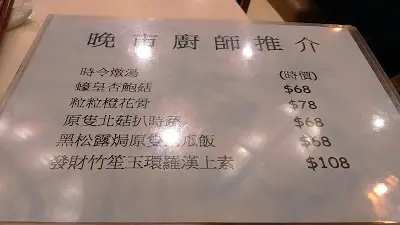 晚市廚師推介
時令燉湯 (時價)
蠔皇杏鮑菇 $68
粒粒橙花骨 $78
原隻北菇扒時蔬 $68
黑松露焗原隻瓜飯 $68
發財竹笙玉環羅漢上素 $108